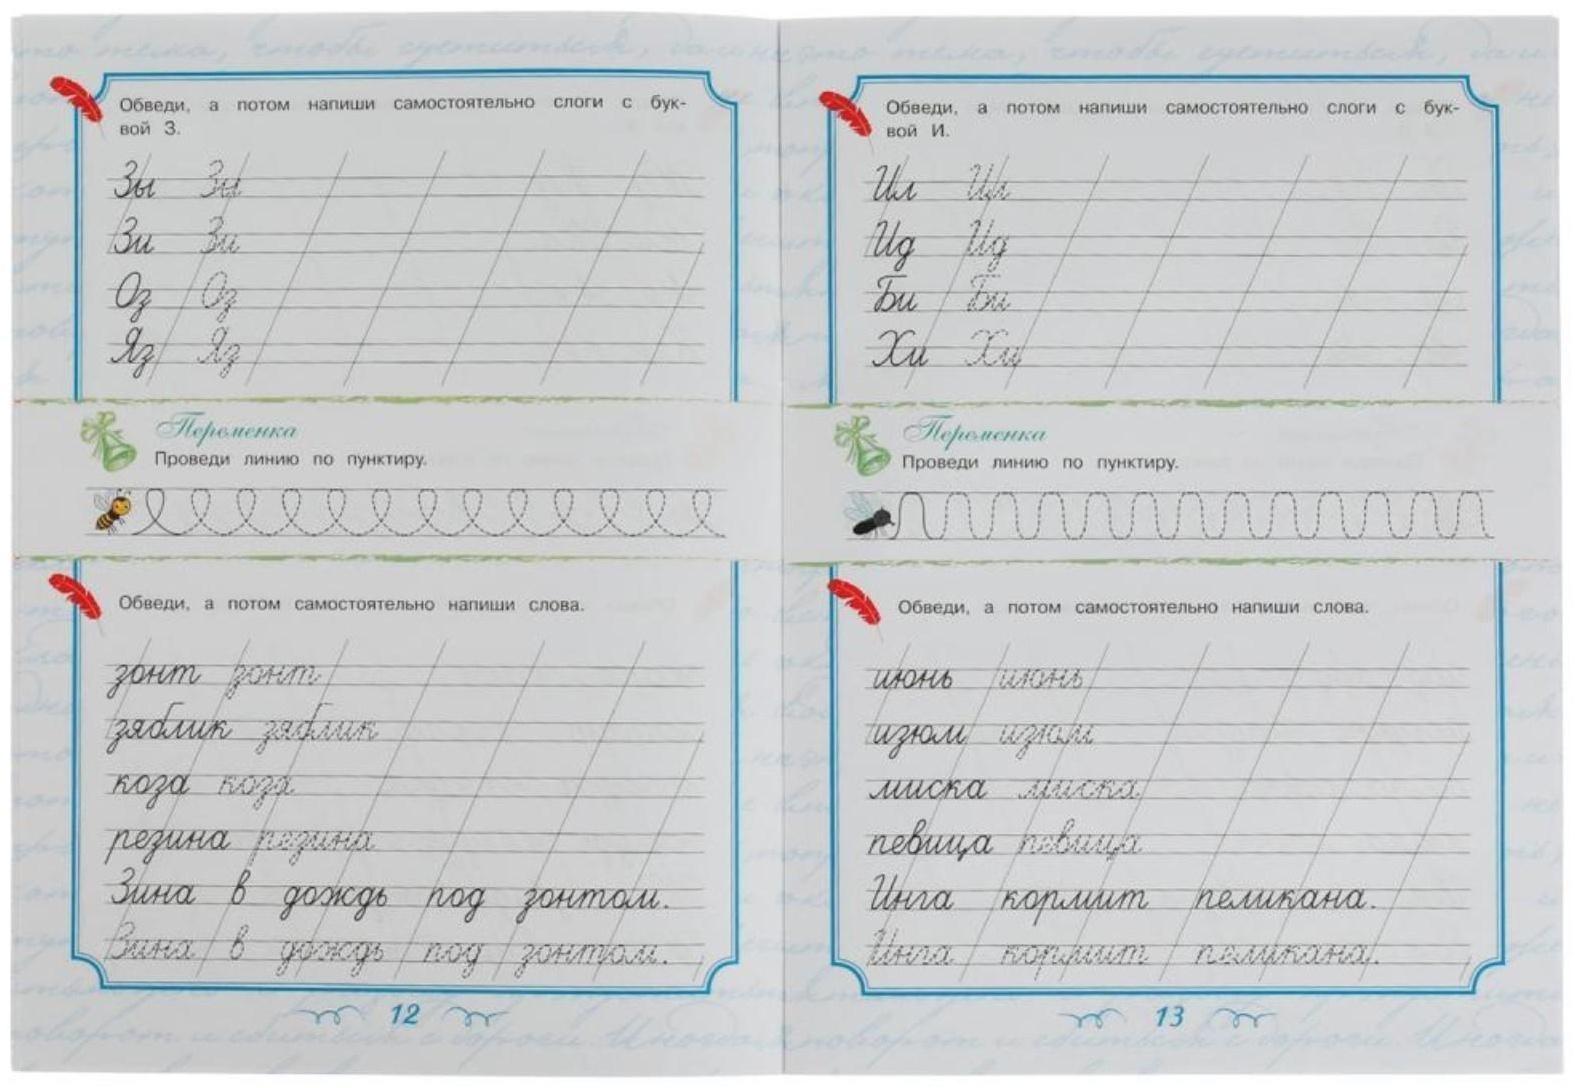 Обведи, а потом напиши самостоятельно слоги с бук-
вой З.
Зы Зы
Зи Зи
Оз Оз
Яз Яз
Переменка
Проведи линию по пунктиру.
Обведи, а потом самостоятельно напиши слова.
зонт зонт
зяблик зяблик
коза коза
резина резина
Зина в дождь под зонтом.
Зина в дождь под зонтом.
12
Обведи, а потом напиши самостоятельно слоги с бук-
вой И.
Ил Ил
Ид Ид
Би Би
Хи Хи
Переменка
Проведи линию по пунктиру.
Обведи, а потом самостоятельно напиши слова.
июнь июнь
изюм изюм
миска миска
певица певица
Инга кормит пеликана.
Инга кормит пеликана.
13